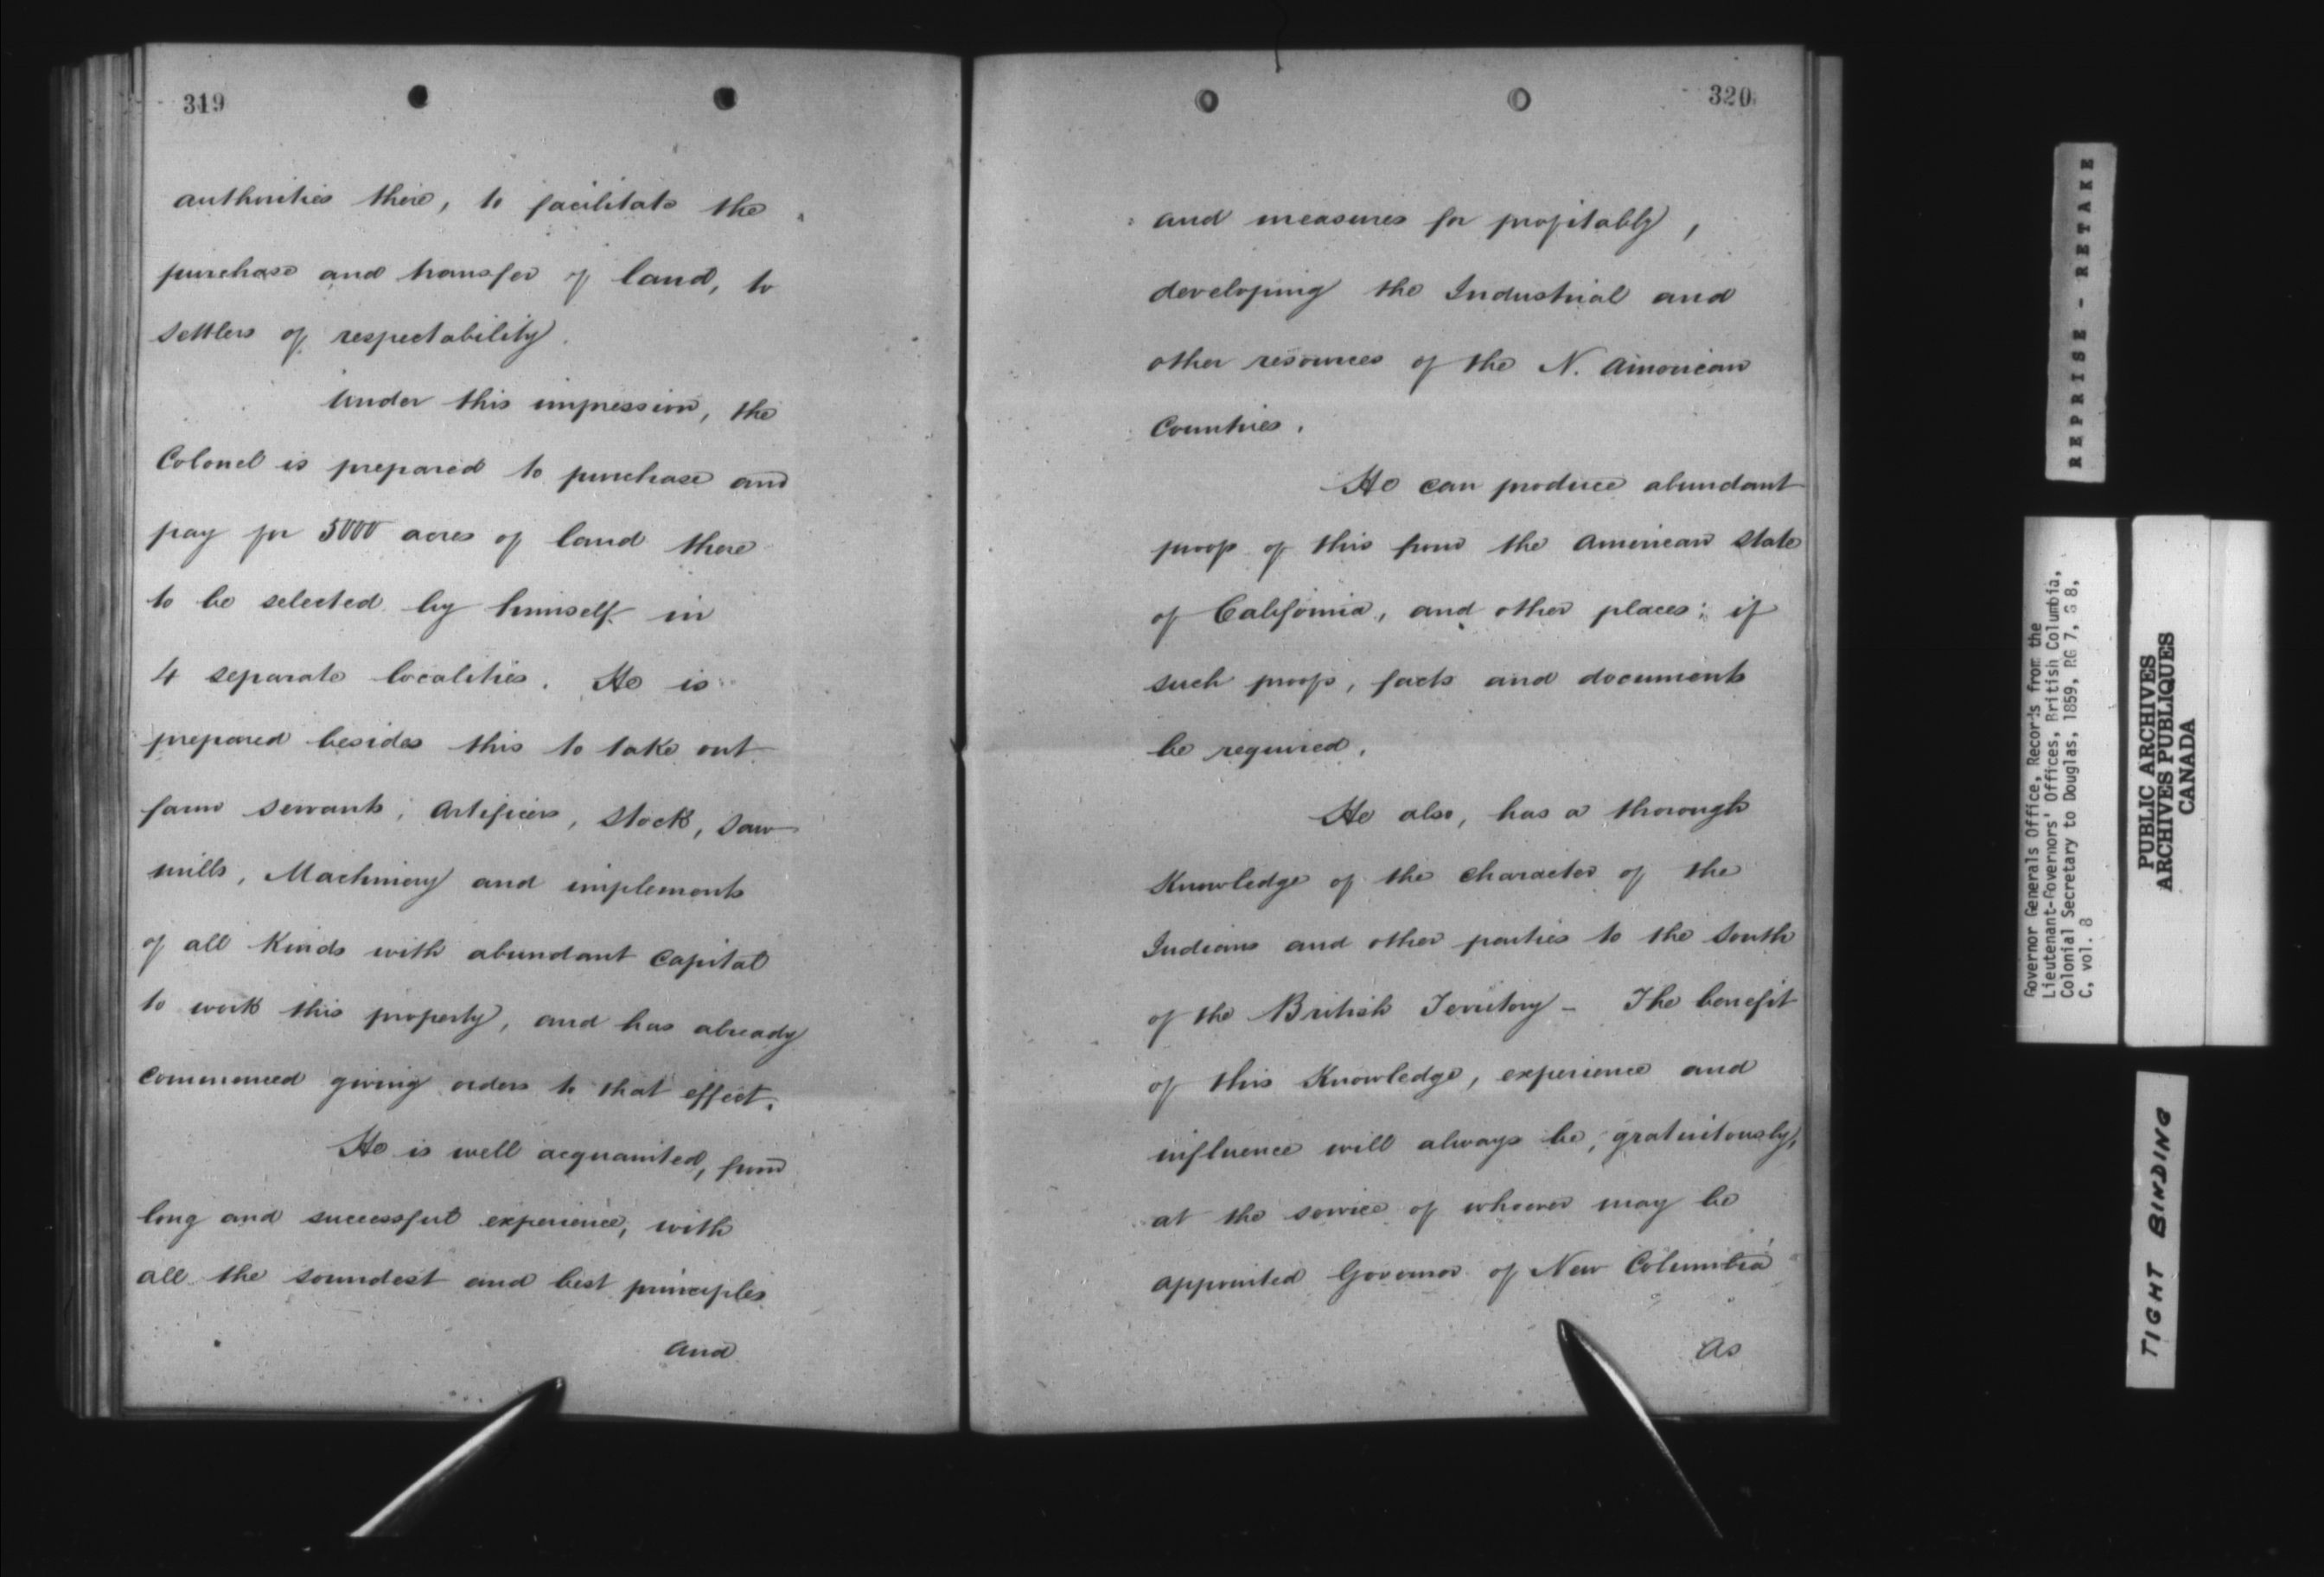 319
authorities there, to facilitate the
purchase and transfer of land, to
settlers of respectability.
Under this impression, the
Colonel is prepared to purchase and
pay for 5000 acres of land there
to be selected by himself in
4 separate localities. He is
prepared besides this to take out
farm servants, Artificers, Stock, Saw
mills, Machinery and implements
of all Kinds with abundant Capital
to work this property, and has already
Commenced giving orders to that effect.
He is well acquainted, from
long and successful experience, with
all the soundest and best principles
and
320
and measures for profitably,
developing the Industrial and
other resources of the N. American
Countries.
He can produce abundant
proof of this from the American State
of California, and other places; if
such proofs, facts and documents
be required.
He also, has a thorough
Knowledge of the Character of the
Indians and other parties to the South
of the British Territory - The benefit
of this Knowledge, experience and
influence will always be, gratuitously,
at the service of whoever may be
appointed Governor of New Columbia
As
REPRISE - RETAKE
Governor Generals Office, Records from the
Lieutenant-Governors' Offices, British Columbia,
Colonial Secretary to Douglas, 1859, RG 7, G 8,
C, vol. 8
PUBLIC ARCHIVES
ARCHIVES PUBLIQUES
CANADA
TIGHT BINDING